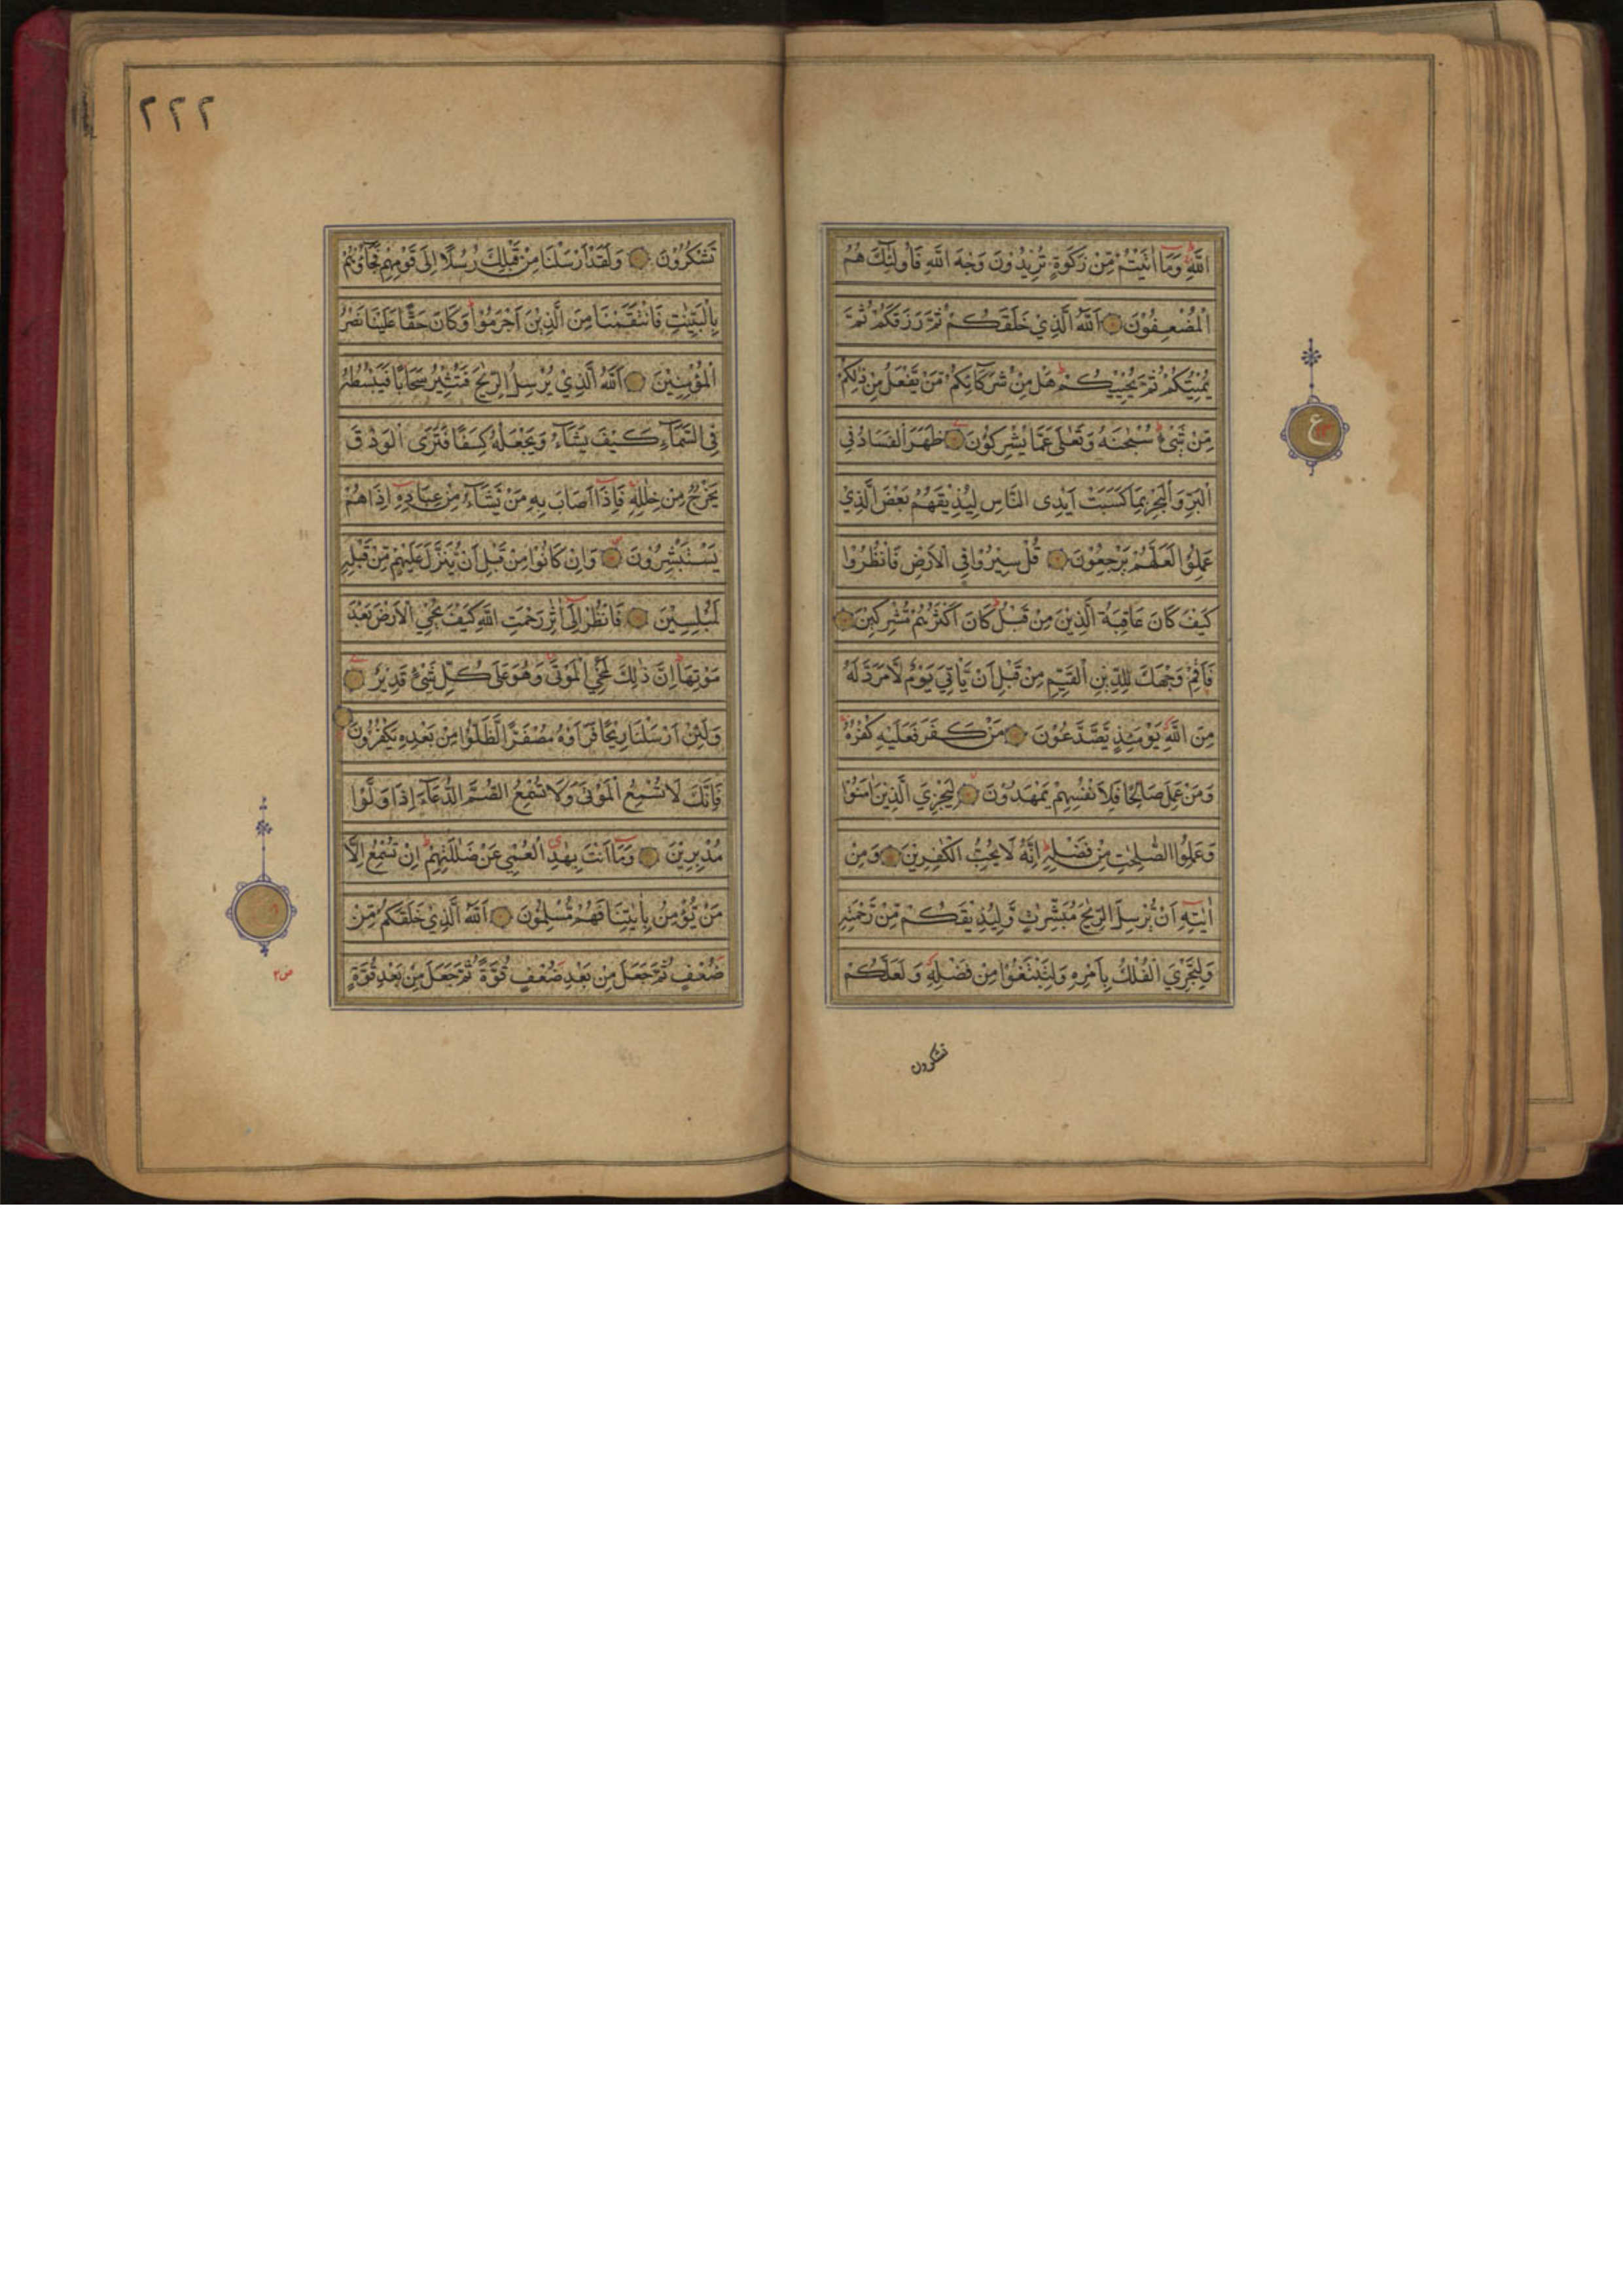 اللّٰهِ وَمَآ اٰتَيْتُمْ مِّنْ زَكٰوةٍ تُرِيْدُوْنَ وَجْهَ اللّٰهِ فَاُولٰٓئِكَ هُمُ
الْمُضْعِفُوْنَ اَللّٰهُ الَّذِيْ خَلَقَكُمْ ثُمَّ رَزَقَكُمْ ثُمَّ
يُمِيْتُكُمْ ثُمَّ يُحْيِيْكُمْ هَلْ مِنْ شُرَكَآئِكُمْ مَّنْ يَّفْعَلُ مِنْ ذٰلِكُمْ
مِّنْ شَيْءٍ سُبْحٰنَهٗ وَتَعٰلٰى عَمَّا يُشْرِكُوْنَ ظَهَرَ الْفَسَادُ فِي
الْبَرِّ وَالْبَحْرِ بِمَا كَسَبَتْ اَيْدِى النَّاسِ لِيُذِيْقَهُمْ بَعْضَ الَّذِيْ
عَمِلُوْا لَعَلَّهُمْ يَرْجِعُوْنَ قُلْ سِيْرُوْا فِي الْاَرْضِ فَانْظُرُوْا
كَيْفَ كَانَ عَاقِبَةُ الَّذِيْنَ مِنْ قَبْلُ كَانَ اَكْثَرُهُمْ مُّشْرِكِيْنَ
فَاَقِمْ وَجْهَكَ لِلدِّيْنِ الْقَيِّمِ مِنْ قَبْلِ اَنْ يَّاْتِيَ يَوْمٌ لَّا مَرَدَّ لَهٗ
مِنَ اللّٰهِ يَوْمَئِذٍ يَّصَّدَّعُوْنَ مَنْ كَفَرَ فَعَلَيْهِ كُفْرُهٗ
وَمَنْ عَمِلَ صَالِحًا فَلِاَنْفُسِهِمْ يَمْهَدُوْنَ لِيَجْزِيَ الَّذِيْنَ اٰمَنُوْا
وَعَمِلُوا الصّٰلِحٰتِ مِنْ فَضْلِهٖ اِنَّهٗ لَا يُحِبُّ الْكٰفِرِيْنَ وَمِنْ
اٰيٰتِهٖٓ اَنْ يُّرْسِلَ الرِّيٰحَ مُبَشِّرٰتٍ وَّلِيُذِيْقَكُمْ مِّنْ رَّحْمَتِهٖ
وَلِتَجْرِيَ الْفُلْكُ بِاَمْرِهٖ وَلِتَبْتَغُوْا مِنْ فَضْلِهٖ وَلَعَلَّكُمْ
تشكرون
ع
٢٢٢
تَشْكُرُوْنَ وَلَقَدْ اَرْسَلْنَا مِنْ قَبْلِكَ رُسُلًا اِلٰى قَوْمِهِمْ فَجَآءُوْهُمْ
بِالْبَيِّنٰتِ فَانْتَقَمْنَا مِنَ الَّذِيْنَ اَجْرَمُوْا وَكَانَ حَقًّا عَلَيْنَا نَصْرُ
الْمُؤْمِنِيْنَ اَللّٰهُ الَّذِيْ يُرْسِلُ الرِّيٰحَ فَتُثِيْرُ سَحَابًا فَيَبْسُطُهٗ
فِي السَّمَآءِ كَيْفَ يَشَآءُ وَيَجْعَلُهٗ كِسَفًا فَتَرَى الْوَدْقَ
يَخْرُجُ مِنْ خِلٰلِهٖ فَاِذَآ اَصَابَ بِهٖ مَنْ يَّشَآءُ مِنْ عِبَادِهٖٓ اِذَا هُمْ
يَسْتَبْشِرُوْنَ وَاِنْ كَانُوْا مِنْ قَبْلِ اَنْ يُّنَزَّلَ عَلَيْهِمْ مِّنْ قَبْلِهٖ
لَمُبْلِسِيْنَ فَانْظُرْ اِلٰٓى اٰثٰرِ رَحْمَتِ اللّٰهِ كَيْفَ يُحْيِ الْاَرْضَ بَعْدَ
مَوْتِهَا اِنَّ ذٰلِكَ لَمُحْيِ الْمَوْتٰى وَهُوَ عَلٰى كُلِّ شَيْءٍ قَدِيْرٌ
وَلَئِنْ اَرْسَلْنَا رِيْحًا فَرَاَوْهُ مُصْفَرًّا لَّظَلُّوْا مِنْ بَعْدِهٖ يَكْفُرُوْنَ
فَاِنَّكَ لَا تُسْمِعُ الْمَوْتٰى وَلَا تُسْمِعُ الصُّمَّ الدُّعَآءَ اِذَا وَلَّوْا
مُدْبِرِيْنَ وَمَآ اَنْتَ بِهٰدِ الْعُمْيِ عَنْ ضَلٰلَتِهِمْ اِنْ تُسْمِعُ اِلَّا
مَنْ يُّؤْمِنُ بِاٰيٰتِنَا فَهُمْ مُّسْلِمُوْنَ اَللّٰهُ الَّذِيْ خَلَقَكُمْ مِّنْ
ضُعْفٍ ثُمَّ جَعَلَ مِنْ بَعْدِ ضُعْفٍ قُوَّةً ثُمَّ جَعَلَ مِنْ بَعْدِ قُوَّةٍ